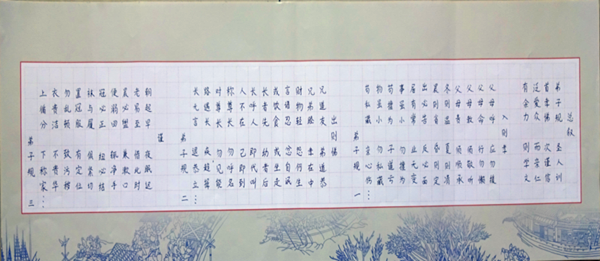 总叙
弟子规 圣人训
首孝悌 次谨信
泛爱众 而亲仁
有余力 则学文
入则孝
父母呼 应勿缓
父母命 行勿懒
父母教 须敬听
父母责 须顺承
冬则温 夏则凊
晨则省 昏则定
出必告 反必面
居有常 业无变
事虽小 勿擅为
苟擅为 子道亏
物虽小 勿私藏
苟私藏 亲心伤…
弟子规 一
出则悌
兄道友 弟道恭
兄弟睦 孝在中
财物轻 怨何生
言语忍 忿自泯
或饮食 或坐走
长者先 幼者后
长呼人 即代叫
人不在 己即到
称尊长 勿呼名
对尊长 勿见能
路遇长 疾趋揖
长无言 退恭立…
弟子规 二
谨
朝起早 夜眠迟
老易至 惜此时
晨必盥 兼漱口
便溺回 辄净手
冠必正 纽必结
袜与履 俱紧切
置冠服 有定位
勿乱顿 致污秽
衣贵洁 不贵华
上循分 下称家…
弟子规 三